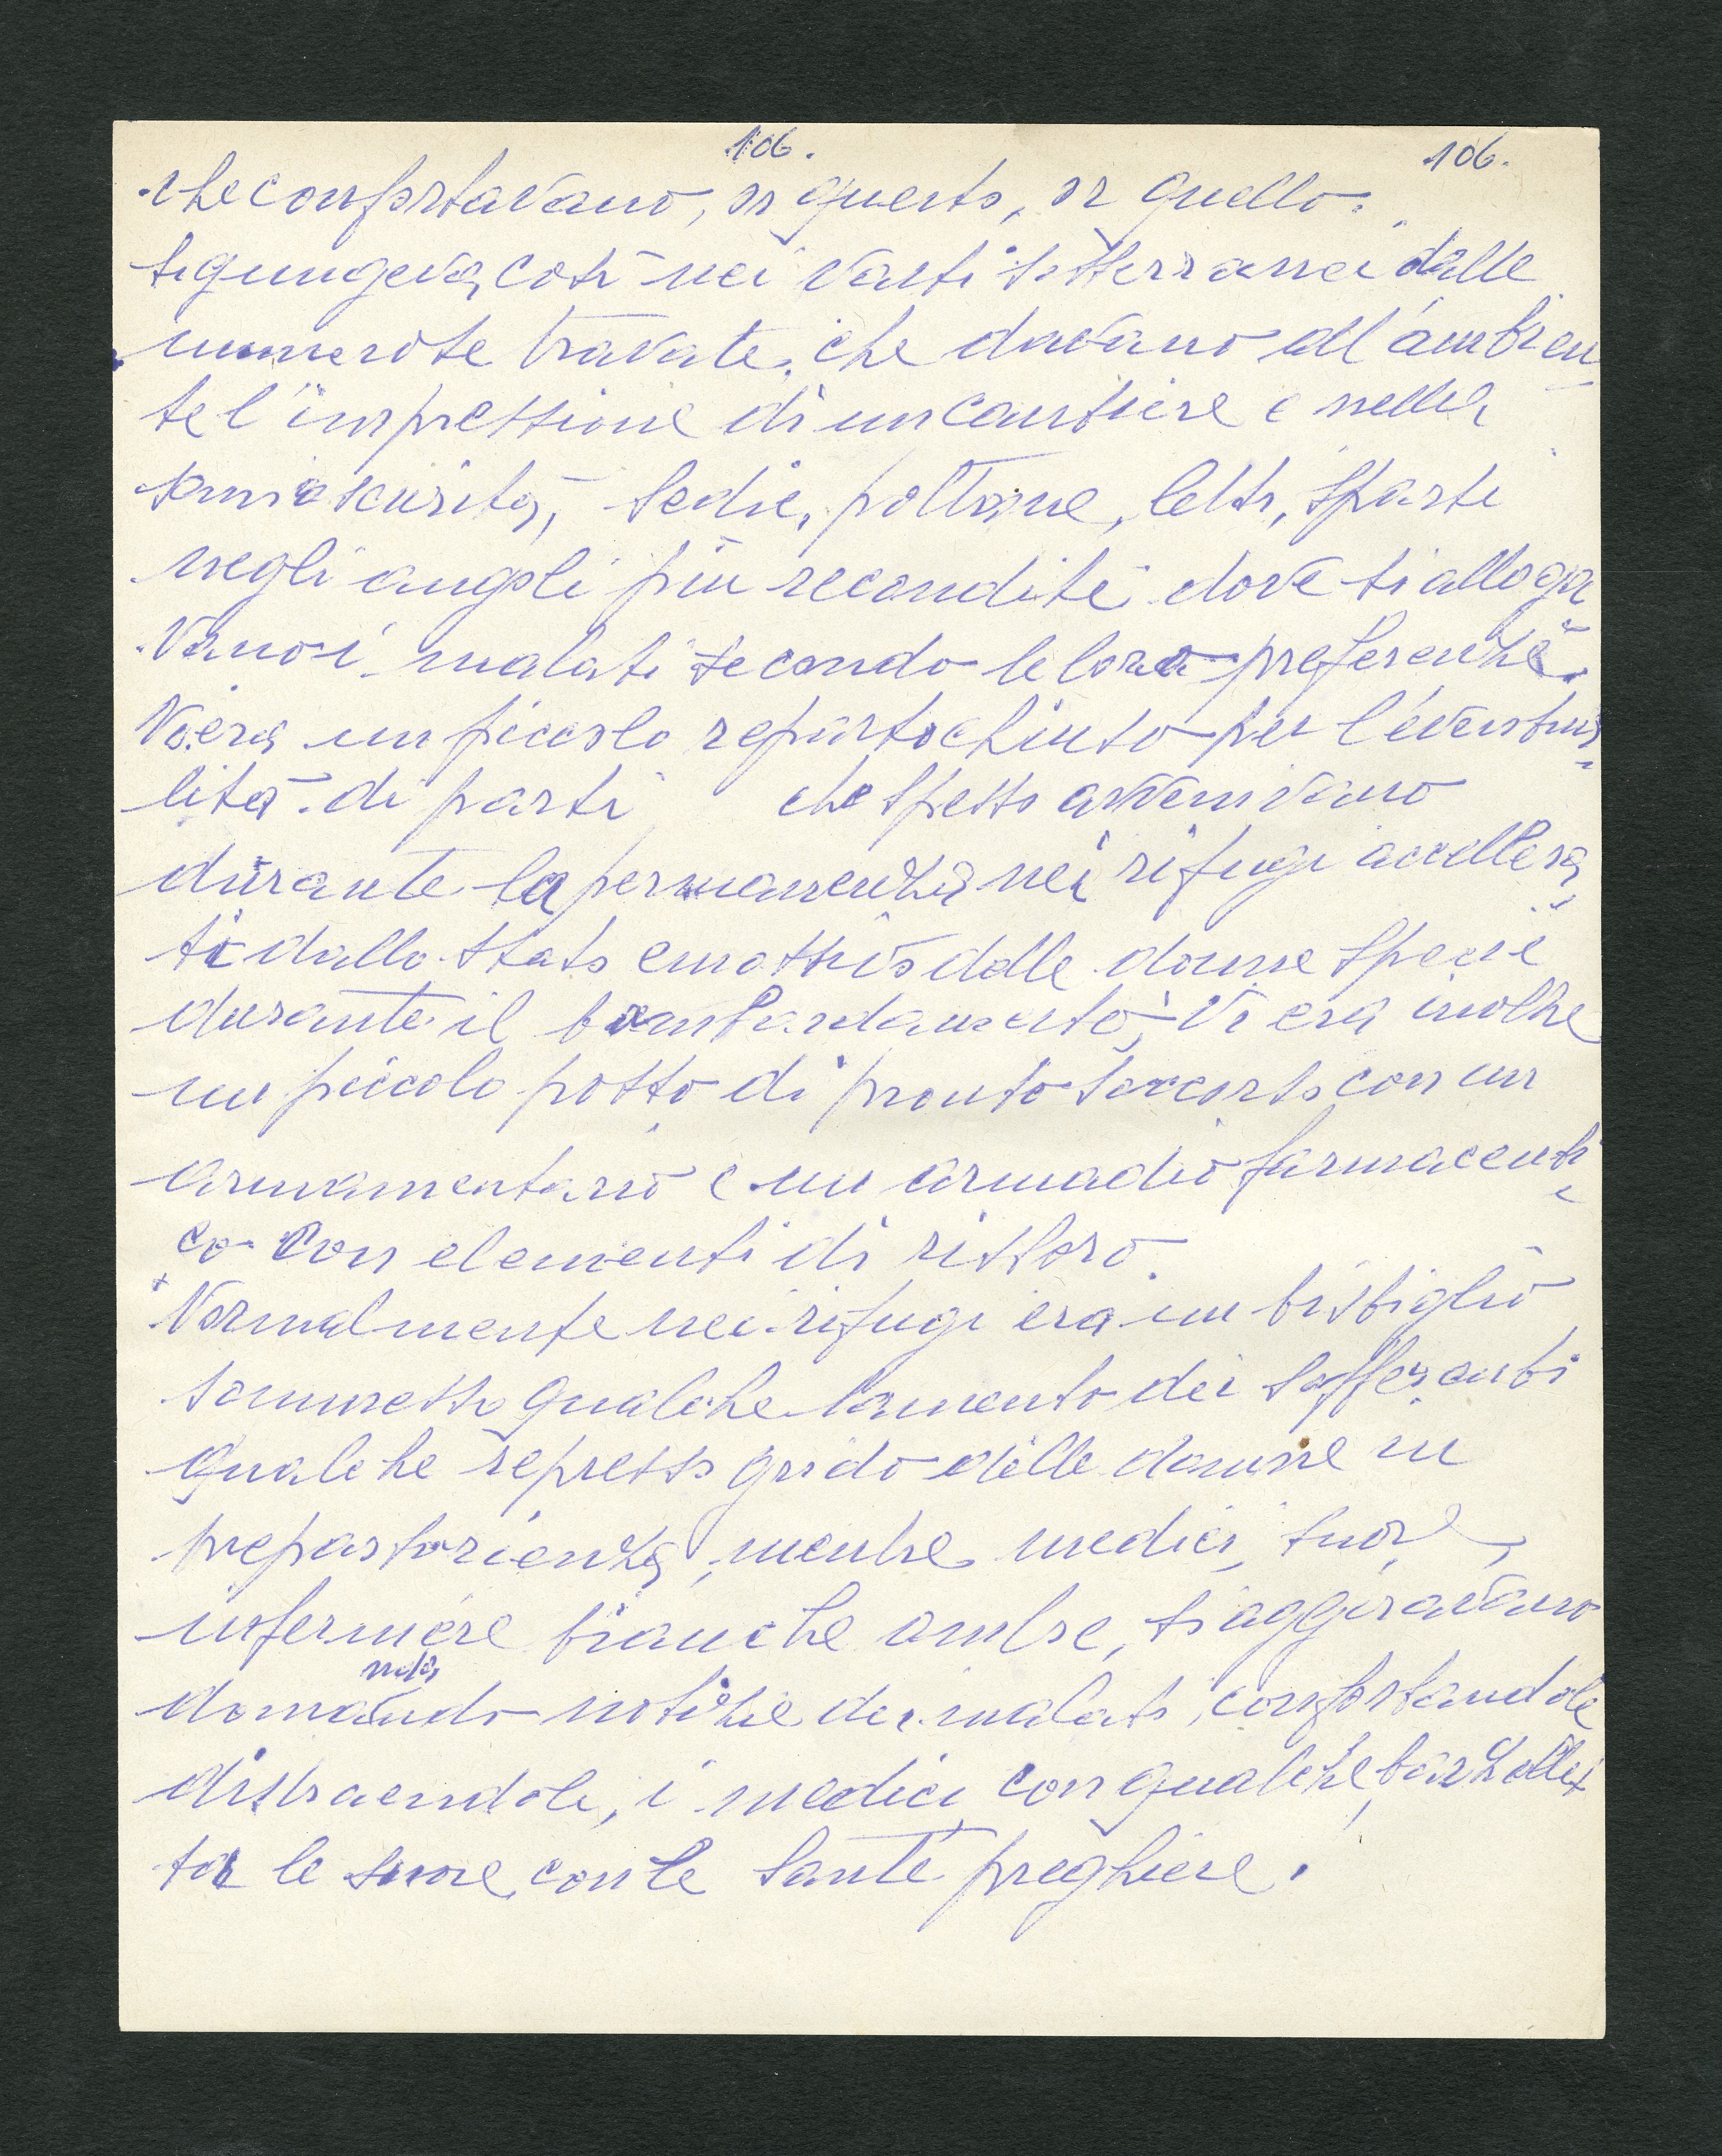 106. 106.
che confortavano, or questo, or quello.
Si giungeva, così nei vasti sotterranei dalle
numerose travate, che davano all'ambien
te l'impressione di un cantiere e nella
semioscurità, sedie, poltrone, letti, sparsi
negli angoli più reconditi dove si alloga
vano i malati secondo le loro preferenze.
Vi era un piccolo reparto chiuso per l'eventua
lità di parti che spesso avvenivano
durante la permanenza nei rifugi accellera
ti dallo stato emotivo delle donne specie
durante il bombardamento. Vi era inoltre
un piccolo posto di pronto soccorso con un
armamentario e un armadio farmaceuti
co con elementi di ristoro.
Normalmente nei rifugi era un bisbiglio
sommesso qualche lamento dei sofferenti
qualche represso grido delle donne in
prepartorienza, mentre medici, suore,
infermiere bianche ombre, si aggiravano
domando notizie dei malati, confortandole
distraendole, i medici con qualche barzellet
ta le suore, con le sante preghiere.